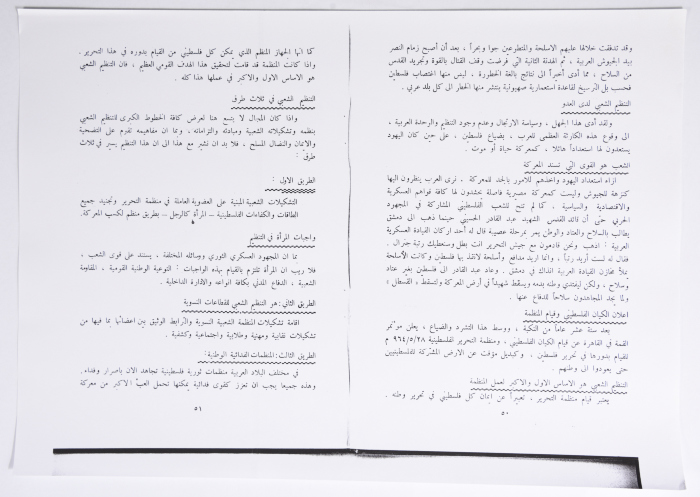 وقد تدفقت خلالها عليهم الاسلحة والمتطوعين جوا وبحراً ، بعد أن أصبح زمام النصر
بيد الجيوش العربية ، ثم الهدنة الثانية التي فرضت وقف القتال بالقوة وتجريد القدس
من السلاح ، مما أدى أخيراً الى نتائج بالغة الخطورة . ليس منها اغتصاب فلسطين
فحسب بل ترسيخ لقاعدة استعمارية صهيونية ينتشر منها الخطر الى كل بلد عربي .
التنظيم الشعبي لدى العدو
ولقد أدى هذا الجهل ، وسياسة الارتجال وعدم وجود التنظيم والوحدة العربية ،
الى وقوع هذه الكارثة العظمى للعرب ، بضياع فلسطين ، على حين كان اليهود
يستعدون لها استعداداً هائلا ، كمعركة حياة أو موت .
الشعب هو القوى التي تسند المعركة
ازاء استعداد اليهود وأخذهم للامور بالجد للمعركة ، نرى العرب ينظرون اليها
كنزهة للجيوش وليست كمعركة مصيرية فاصلة يحشدون لها كافة قواهم العسكرية
والاقتصادية والسياسية . كما لم تتح للشعب الفلسطيني المشاركة في المجهود
الحربي حتى أن قائد القدس الشهيد عبد القادر الحسيني حينما ذهب الى دمشق
يطالب بالسلاح والعتاد والوطن يمر بمرحلة عصيبة قال له أحد اركان القيادة العسكرية
العربية : اذهب ونحن قادمون مع جيش التحرير انت بطل وسنعطيك رتبة جنرال .
فقال له لست أريد رتباً ، وانما اريد مدافع وأسلحة لانقذ بها فلسطين وكانت الأسلحة
تملأ مخازن القيادة العربية انذاك في دمشق . وعاد عبد القادر الى فلسطين بغير عتاد
وسلاح ، ولكن ليفتدي وطنه بدمه ويسقط شهيداً في أرض المعركة ولتسقط « القسطل »
ولما يجد المجاهدون سلاحاً للدفاع عنها .
اعلان الكيان الفلسطيني وقيام المنظمة
بعد ستة عشر عاماً من النكبة ، ووسط هذا التشرد والضياع ، يعلن مؤتمر
القمة في القاهرة عن قيام الكيان الفلسطيني ، ومنظمة التحرير الفلسطينية ٩٦٤/٥/٢٨ م
للقيام بدورها في تحرير فلسطين . وكبديل مؤقت عن الارض المشتركة للفلسطينيين
حتى يعودوا الى وطنهم .
التنظيم الشعبي هو الاساس الاول والاكبر لعمل المنظمة
يعتبر قيام منظمة التحرير ، تعبيراً عن إيمان كل فلسطيني في تحرير وطنه .
٥٠
كما انها الجهاز المنظم الذي يمكن كل فلسطيني من القيام بدوره في هذا التحرير .
واذا كانت المنظمة قد قامت لتحقيق هذا الهدف القومي العظيم ، فان التنظيم الشعبي
هو الاساس الاول والاكبر في عملها هذا كله .
التنظيم الشعبي في ثلاث طرق
واذا كان المجال لا يتسع هنا لعرض كافة الخطوط الكبرى للتنظيم الشعبي
بنظمه وتشكيلاته الشعبية ومبادئه والتزاماته ، وبما ان مفاهيمه تقوم على التضحية
والايمان والنضال المسلح ، فلا بد ان نشير مع هذا الى ان هذا التنظيم يسير في ثلاث
طرق :
الطريق الاول :
التشكيلات الشعبية المبنية على العضوية العاملة في منظمة التحرير وتجنيد جميع
الطاقات والكفاءات الفلسطينية – المرأة كالرجل – بطريق منظم لكسب المعركة.
واجبات المرأة في التنظيم
بما ان المجهود العسكري الثوري ووسائله المختلفة ، يستند على قوى الشعب ،
فلا ريب ان المرأة تلتزم بالقيام بهذه الواجبات : التوعية الوطنية القومية ، المقاومة
الشعبية ، الدفاع المدني بكافة انواعه والادارة الداخلية .
الطريق الثاني: هو التنظيم الشعبي للقطاعات النسوية
اقامة تشكيلات المنظمة الشعبية النسوية والترابط الوثيق بين اعضائها بما فيها من
تشكيلات نقابية ومهنية وطلابية واجتماعية وكشفية .
الطريق الثالث: المنظمات الفدائية الوطنية :
في مختلف البلاد العربية منظمات ثورية فلسطينية تجاهد الان باصرار وفداء .
وهذه جميعها يجب ان تعزز كقوى فدائية يمكنها تحمل العبء الاكبر من معركة
٥١